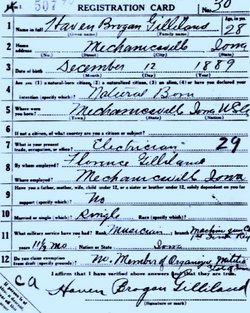 REGISTRATION CARD No. 30
1 Name in full Haven Brogan Gilleland Age, in yrs. 28
(Given name) (Family name)
2 Home address Mechanicsville Iowa
(No.) (Street) (City) (State)
3 Date of birth December 12 1889
(Month) (Day) (Year)
4 Are you (1) a natural-born citizen, (2) a naturalized citizen, (3) an alien, (4) or have you declared your
intention (specify which)? Natural Born
5 Where were you born? Mechanicsville Iowa U.S.
(Town) (State) (Nation)
6 If not a citizen, of what country are you a citizen or subject?
7 What is your present trade, occupation, or office? Electrician 29
8 By whom employed? Florence Gilleland
Where employed? Mechanicsville Iowa
9 Have you a father, mother, wife, child under 12, or a sister or brother under 12, solely dependent on you for
support (specify which)? No
10 Married or single (which)? Single Race (specify which)?
11 What military service have you had? Rank Musician branch Machine Gun Co
years 11/2 mo Nation or State Iowa
12 Do you claim exemption from draft (specify grounds)? No. Member of Organized
I affirm that I have verified above answers and that they are true.
CA
Haven Brogan Gilleland
(Signature or mark)